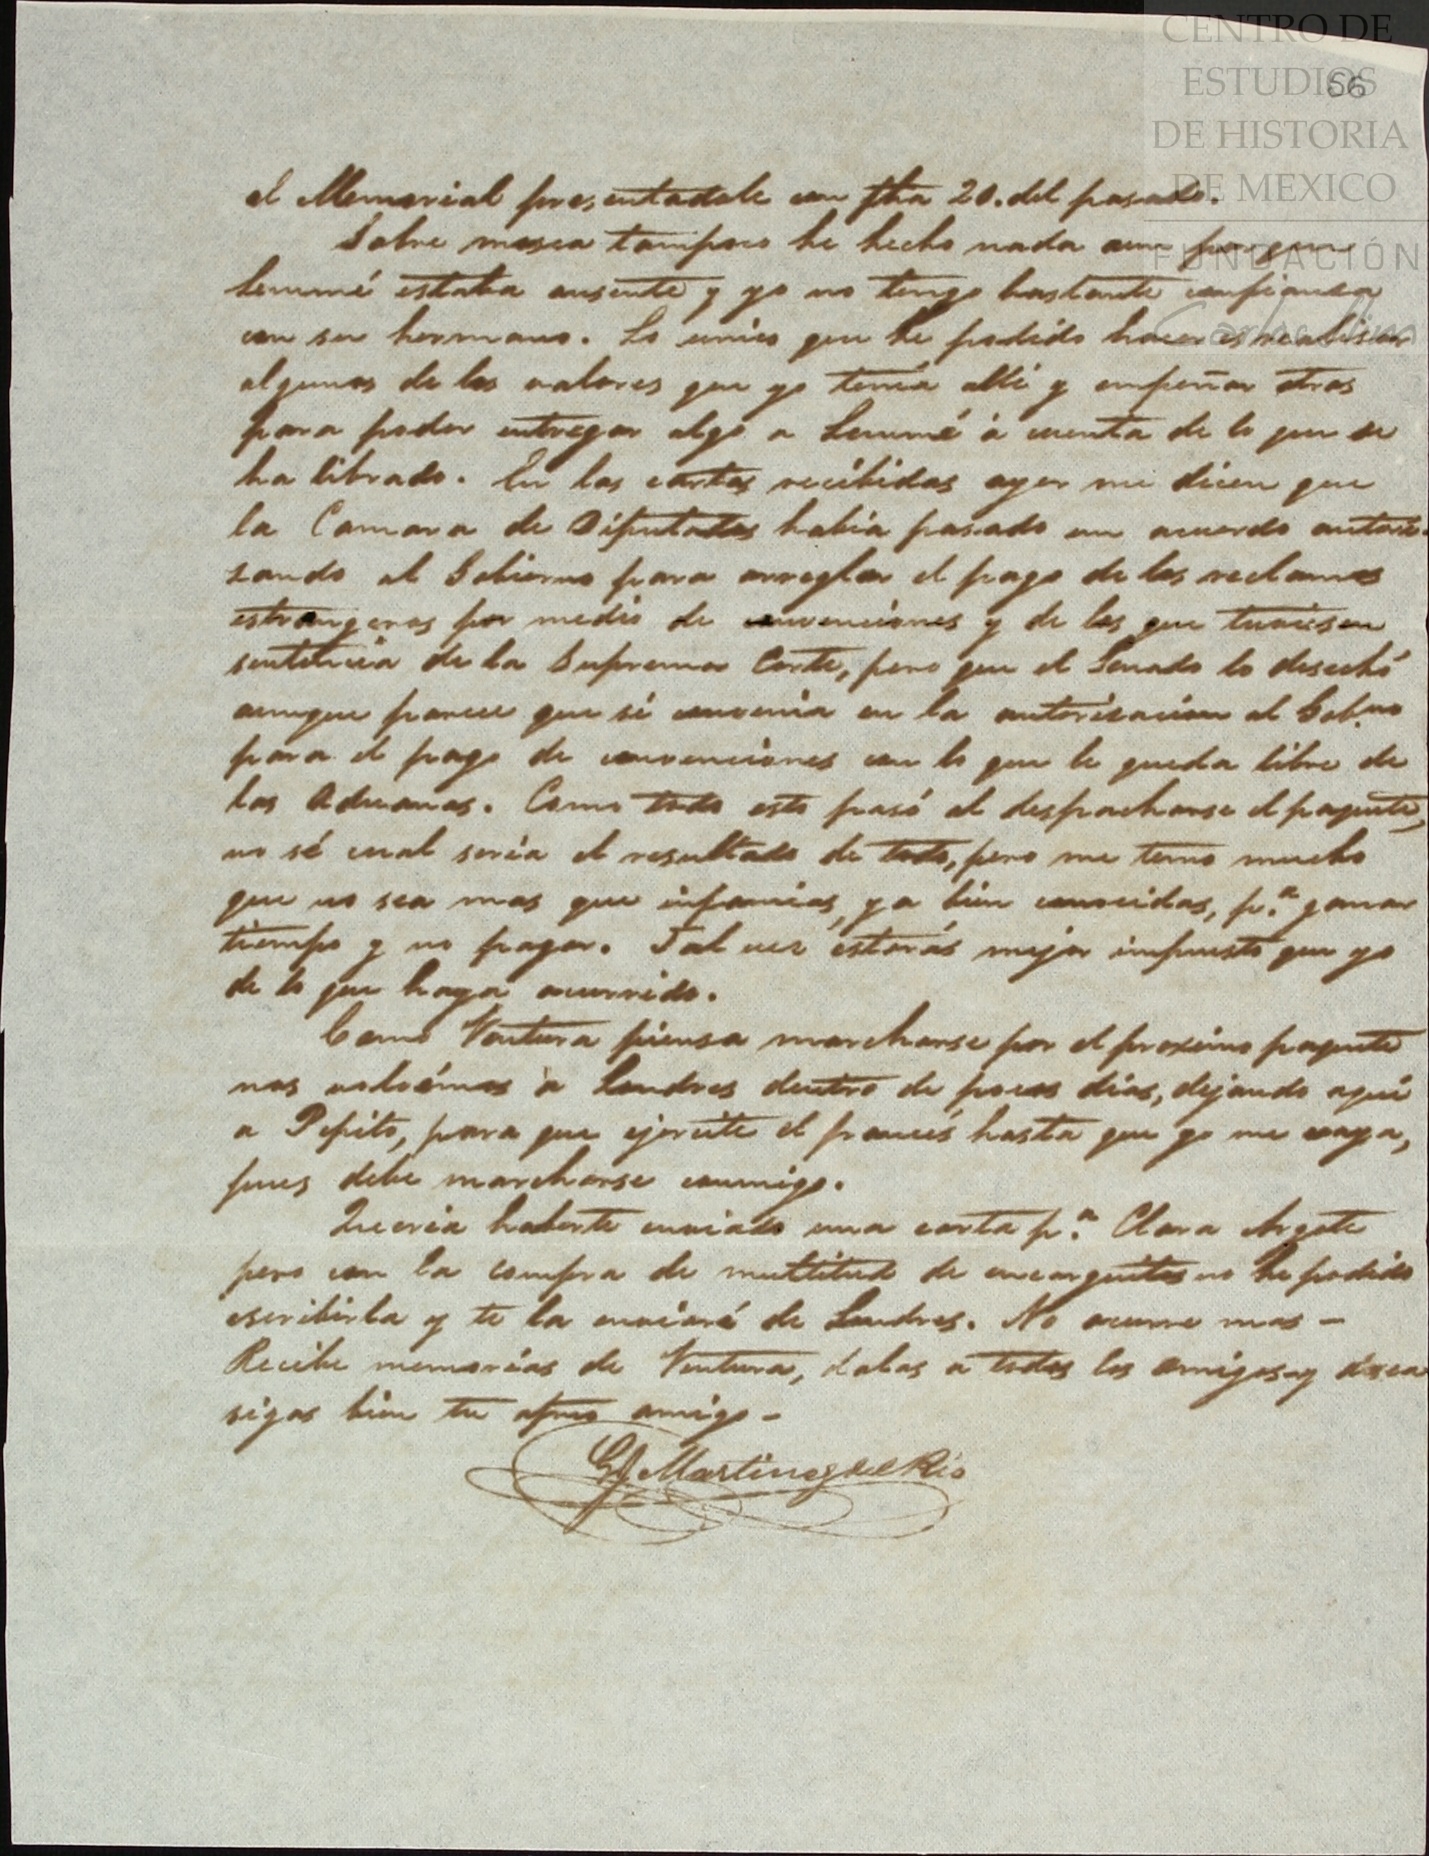 CENTRO DE
ESTUDIOS
DE HISTORIA
DE MEXICO
FUNDACIÓN
Carlos Slim
66
el Memorial presentadole con fha 20. del pasado.
Sobre mosca tampoco he hecho nada aun porque
Lemmé estaba ausente y yo no tengo bastante confianza
con su hermano. Lo unico que he podido hacer es realisar
algunos de los valores que yo tenia alli y empeñar otros
para poder entregar algo a Lemmé á cuenta de lo que se
ha librado. En las cartas recibidas ayer me dicen que
la Camara de Diputados habia pasado un acuerdo autori-
zando al Gobierno para arreglar el pago de los reclamos
estrangeros por medio de convenciones y de los que tuviesen
sentencia de la Suprema Corte, pero que el Senado lo desechó
aunque parece que sí convenia en la autorizacion al Gob.no
para el pago de convenciones con lo que le queda libre de
las Aduanas. Como todo esto pasó al despacharse el paquete,
no sé cual seria el resultado de todo, pero me temo mucho
que no sea mas que infamias, ya bien conocidas, p.a ganar
tiempo y no pagar. Tal vez estarás mejor impuesto que yo
de lo que haya ocurrido.
Como Ventura piensa marcharse por el proximo paquete
nos volvémos à Londres dentro de pocos dias, dejando aqui
a Pepito, para que ejercite el francés hasta que yo me vaya,
pues debe marcharse conmigo.
Queria haberte enviado una carta p.a Clara
pero con la compra de multitud de encarguitos no he podido
escribirla y te la enviaré de Londres. No ocurre mas –
Recibe memorias de Ventura, dalas a todos los amigos y desea
sigas bien tu afmo amigo –
G J Martinez del Rio